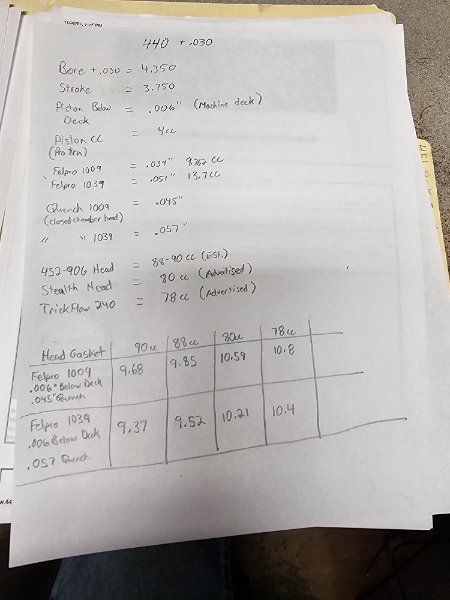 440 + .030
Bore +.030 = 4.350
Stroke = 3.750
Piston Below Deck = .006" (Machine deck)
Piston CC = 4cc
Felpro 1009 = .039" 9.762 CC
Felpro 1039 = .051" 13.7cc
Quench 1009 = .045"
(closed chamber head)
" " 1039 = .057"
452-906 Head = 88-90 cc (Est.)
Stealth Head = 80 cc (Advertised)
TrickFlow 240 = 78 cc (Advertised)
Head Gasket 90cc 88cc 80cc 78cc
Felpro 1009 9.68 9.85 10.59 10.8
.006" Below Deck
.045" Quench
Felpro 1039 9.37 9.52 10.21 10.4
.006 Below Deck
.057 Quench